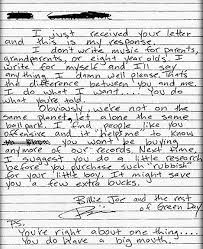 I just received your letter
and this is my response.
I don't write music for parents,
grandparents, or eight year olds. I
write for myself and I'll say
anything I damn well please. That's
the difference between you and me.
I do what I want... You do
what you're told.
Obviously, we're not on the
same planet, let alone the same
ball park. I find people like you
offensive and it helps me to know
you won't be buying
any more of our records. Next time,
I suggest you do a little research
before you purchase such "rubbish"
for your little boy. It might save
you a few extra bucks.
Billie Joe and the rest
of Green Day
PS.
You're right about one thing...
You do have a big mouth.